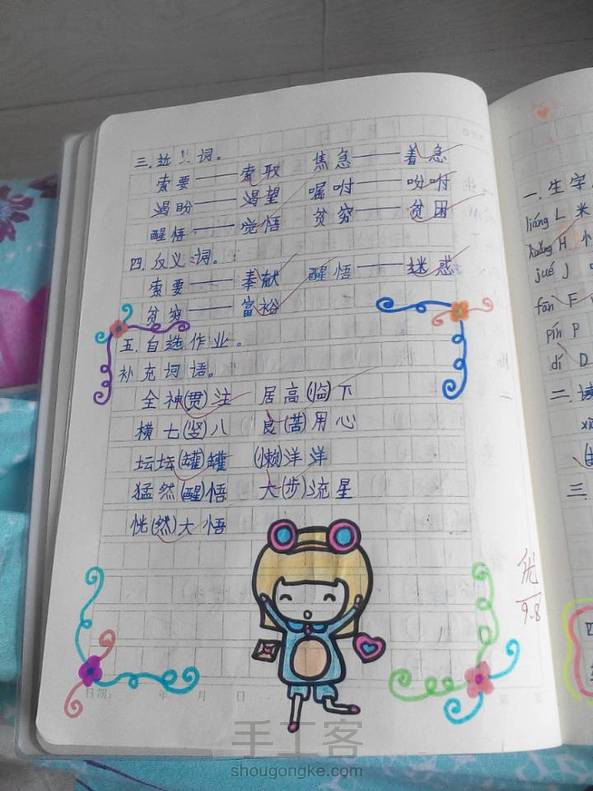 三.近义词。
索要——索取 焦急——着急
渴盼——渴望 嘱咐——吩咐
醒悟——觉悟 贫穷——贫困
四.反义词。
索要——奉献 醒悟——迷惑
贫穷——富裕
五.自选作业。
补充词语。
全神(贯)注 居高(临)下
横七(竖)八 良(苦)用心
坛坛(罐)罐 (懒)洋洋
猛然(醒)悟 大(步)流星
恍(然)大悟
优
9.8
日期： 年 月 日
手工客
shougongke.com
一.生字
liáng L 米
huāng H
jué J
fān F
pín P
dí D
二.读
三
四